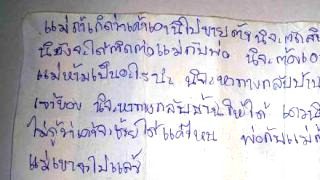 แม่ถ้าเกิดว่าเค้าเอานี่ไปขายตัว นี่จะ
นี่ยังจะได้ติดต่อแม่กับพ่อ นี่จะต้องเอา
แม่ห้ามเป็นอะไรนะ นี่จะหาทางกลับบ้าน
เอาเอง นี่จะหาทางกลับบ้านให้ได้
ไม่รู้ว่าเค้าจะช่วยได้แค่ไหน พ่อกับแม่
แม่เขาจะไปแล้ว